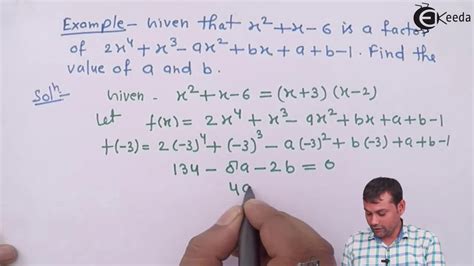 Ekeeda
Example- Given that x²+x-6 is a factor
of 2x⁴+x³-ax²+bx+a+b-1. Find the
value of a and b.
Solⁿ
Given - x²+x-6 = (x+3)(x-2)
Let f(x) = 2x⁴+x³-ax²+bx+a+b-1
f(-3) = 2(-3)⁴+(-3)³-a(-3)²+b(-3)+a+b-1
134-8a-2b = 0
4a